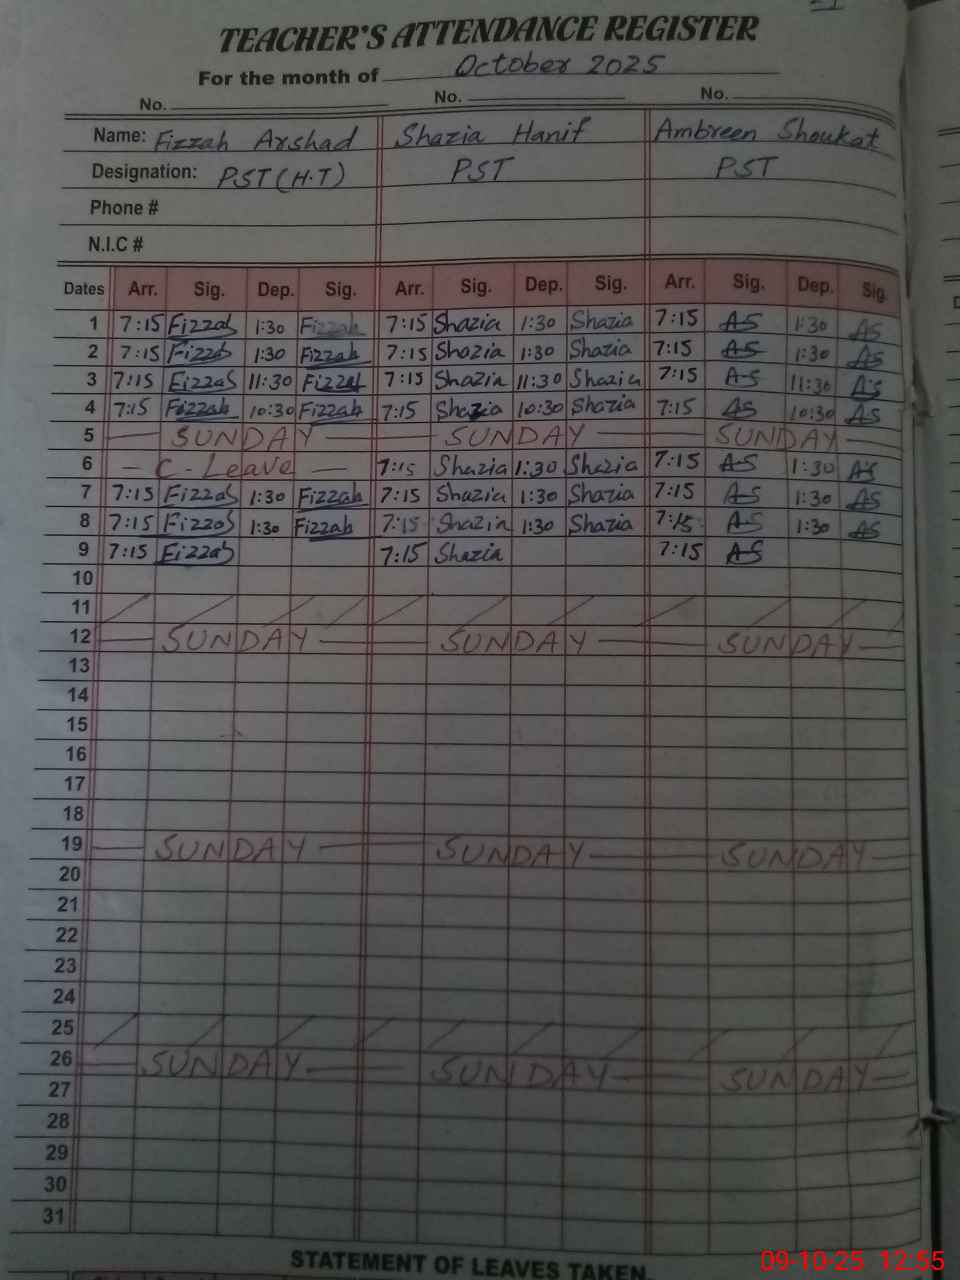 TEACHER'S ATTENDANCE REGISTER
For the month of October 2025
No. No. No.
Name: Fizzah Arshad Shazia Hanif Ambreen Shoukat
Designation: PST (H.T) PST PST
Phone #
N.I.C #
Dates Arr. Sig. Dep. Sig. Arr. Sig. Dep. Sig. Arr. Sig. Dep. Sig.
1 7:15 Fizzah 1:30 Fizzah 7:15 Shazia 1:30 Shazia 7:15 AS 1:30 AS
2 7:15 Fizzah 1:30 Fizzah 7:15 Shazia 1:30 Shazia 7:15 AS 1:30 AS
3 7:15 Fizzah 11:30 Fizzah 7:15 Shazia 11:30 Shazia 7:15 AS 11:30 AS
4 7:15 Fizzah 10:30 Fizzah 7:15 Shazia 10:30 Shazia 7:15 AS 10:30 AS
5 SUNDAY SUNDAY SUNDAY
6 C-Leave 7:15 Shazia 1:30 Shazia 7:15 AS 1:30 AS
7 7:15 Fizzah 1:30 Fizzah 7:15 Shazia 1:30 Shazia 7:15 AS 1:30 AS
8 7:15 Fizzah 1:30 Fizzah 7:15 Shazia 1:30 Shazia 7:15 AS 1:30 AS
9 7:15 Fizzah 7:15 Shazia 7:15 AS
10
11
12 SUNDAY SUNDAY SUNDAY
13
14
15
16
17
18
19 SUNDAY SUNDAY SUNDAY
20
21
22
23
24
25
26 SUNDAY SUNDAY SUNDAY
27
28
29
30
31
STATEMENT OF LEAVES TAKEN.
09-10-25 12:55